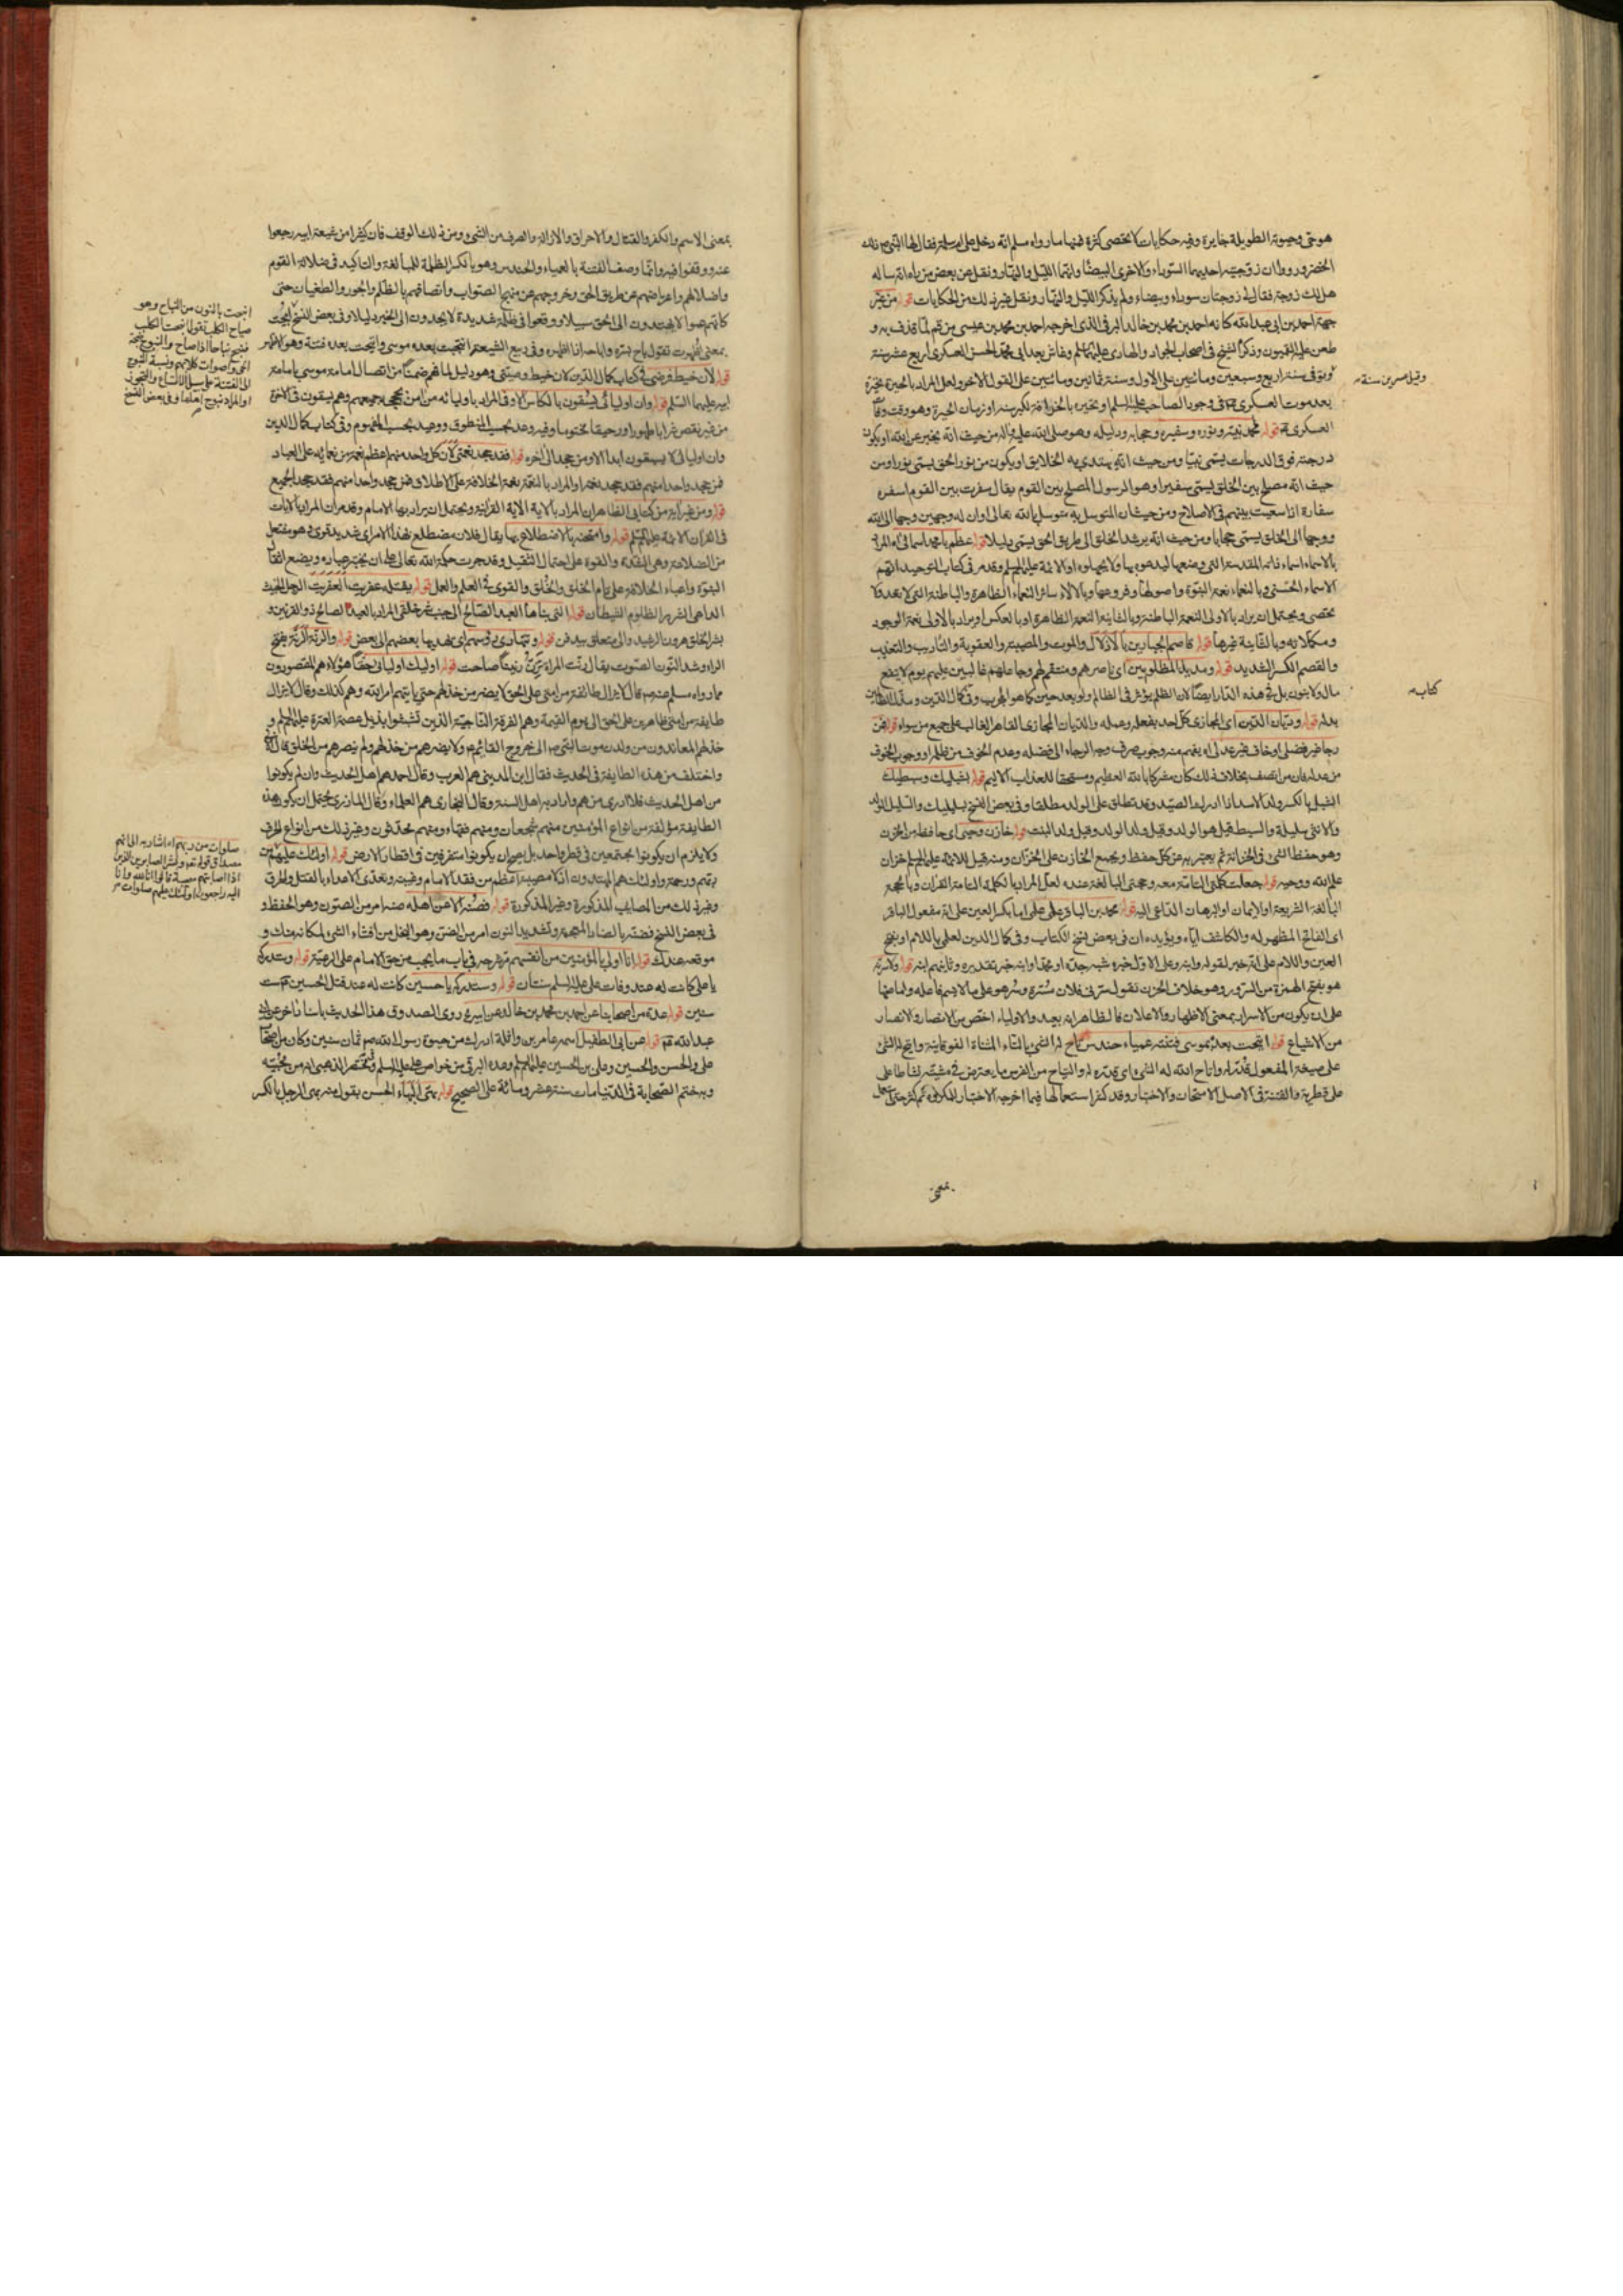 هو حي وحيوته الطويلة جايزة وفيه حكايات لا تحصى كثرة منها ما رواه مسلم انه دخل على ام سلمة فقال لها النبي
الخضر وروا ان زوجتيه احديهما السوداء والاخرى البيضاء وانهما الليل والنهار ونقل عن بعض من راه انه ساله
هل لك زوجة فقال لي زوجتان سوداء وبيضاء ولم يذكر الليل والنهار ونقل غير ذلك من الحكايات قوله من غير
جهة احمد بن ابي عبد الله كانه احمد بن محمد بن خالد البرقي الذي اخرجه احمد بن محمد بن عيسى من قم لما قذف به و
طعن عليه القميون وذكر الشيخ في اصحاب الجواد والهادي عليهما السلم وعاش بعد ابي محمد الحسن العسكري اربع عشر سنة
وتوفي سنة اربع وسبعين ومائتين على الاول وسنة ثمانين ومائتين على القول الاخر ولعل المراد بالحيرة تحيره
بعد موت العسكري في وجود الصاحب عليه السلم او تحيره بالخرافة لكبر سنه او زمان الحيرة وهو وقت وفاة
العسكري قوله محمد نبيه ونوره وسفيره وحجابه ودليله وهو صلى الله عليه واله من حيث انه يخبر عن الله او يكون
درجته فوق الدرجات يسمى نبيا ومن حيث انه يهتدى به الخلايق او يكون من نور الحق يسمى نورا ومن
حيث انه مصلح بين الخلق يسمى سفيرا وهو الرسول المصلح بين القوم يقال سفرت بين القوم اسفر
سفارة اذا سعيت بينهم في الاصلاح ومن حيث ان المتوسل به متوسل بالله تعالى او ان له وجهين وجها الى الله
ووجها الى الخلق يسمى حجابا ومن حيث انه يرشد الخلق الى طريق الحق يسمى دليلا قوله عظم يا محمد اسمائي المراد
بالاسماء اسماء ذاته المقدسة التي وضعها ليدعوه بها ولا يجهلوه او الائمة عليهم السلم وقد مر في كتاب التوحيد انهم
الاسماء الحسنى وبالنعماء نعمة النبوة واصولها وفروعها وبالالاء سائر النعماء الظاهرة والباطنة التي لا تعد ولا
تحصى ويحتمل ان يراد بالاولى النعمة الباطنة وبالثانية النعمة الظاهرة او بالعكس او يراد بالاولى نعمة الوجود
ومكملاته وبالثانية غيرها قوله قاصم الجبارين بالاذلال والموت والمصيبة والعقوبة والتاديب والتعذيب
والقصم الكسر الشديد قوله ومديل المظلومين اي ناصرهم ومنتقم لهم وجاعلهم غالبين عليهم يوم لا ينفع
مال ولا بنون بل في هذه الدار ايضا لان الظلم يؤثر في الظالم ولو بعد حين كما هو المجرب وفي كمال الدين ومذل الظالمين
بدله قوله وديان الدين اي المجازي كل احد بفعله وعمله والديان المجازي القاهر الغالب على جميع من سواه قوله فمن
رجا غير فضلي او خاف غير عدلي اه يفهم منه وجوب صرف وجه الرجاء الى فضله وعدم الخوف من ظلمه ووجوب الخوف
من عدله فان من اتصف بخلاف ذلك كان مشركا بالله العظيم ومستحقا للعذاب الاليم قوله بشبليك وسبطيك
الشبل بالكسر ولد الاسد اذا ادرك الصيد وقد تطلق على الولد مطلقا وفي بعض النسخ بسليليك والسليل الولد
والانثى سليلة والسبط قيل هو الولد وقيل ولد الولد وقيل ولد البنت قوله خازن وحيي اي حافظه من الخزن
وهو حفظ الشيء في الخزانة ثم يعبر به عن كل حفظ ويجمع الخازن على الخزان ومنه قيل للائمة عليهم السلم خزان
علم الله ووحيه قوله جعلت كلمتي التامة معه وحجتي البالغة عنده لعل المراد بالكلمة التامة القرآن وبالحجة
البالغة الشريعة او الايمان او البرهان الداعي اليه قوله محمد بن الباقر علي علمي اما بكسر العين على انه مفعول الباقر
اي الفاتح المظهر له والكاشف اياه ويؤيده ان في بعض نسخ الكتاب وفي كمال الدين لعلمي باللام او بفتح
العين واللام على انه خبر لقوله وابنه وعلى الاول خبره شبه جده او محمد او ابنه خبر بتقديره وثانيهم ابنه قوله ولاسرنه
هو بفتح الهمزة من السرور وهو خلاف الحزن تقول سرني فلان مسرة وسر هو على ما لم يسم فاعله واما ضمها
على ان يكون من الاسرار بمعنى الاظهار والاعلان فالظاهر انه بعيد والاولياء اخص من الانصار والانصار
من الاشياع قوله اتيحت بعده بموسى فتنة عمياء حندس تاح له الشيء بالتاء المثناة الفوقانية واتيح له الشيء
على صيغة المفعول قدر له واتاح الله له الشيء اي قدره له والمتياح من الفرس ما يعترض في مشيته نشاطا على
على قطريه والفتنة في الاصل الامتحان والاختبار وقد كثر استعمالها فيما اخرجه الاختبار للمكروه ثم كثر حتى استعمل
بمعنى
وقيل عشرين سنة
كتابه
بمعنى الاسم والكفر والقتال والاحراق والازالة والصرف من الشيء ومن ذلك الوقف فان كثيرا من شيعة ابيه رجعوا
عنه ووقفوا فيه وانما وصف الفتنة بالعمياء والحندس وهو بالكسر الظلمة للمبالغة والتاكيد في ضلالة القوم
واضلالهم واعراضهم عن طريق الحق وخروجهم عن منهج الصواب واتصافهم بالظلم والجور والطغيان حتى
كانهم عموا لا يهتدون الى الحق سبيلا ووقعوا في ظلمة شديدة لا يجدون الى الخير دليلا وفي بعض النسخ ابيحت
بمعنى ظهرت تقول باح بسره واباحه اذا اظهره وفي ربيع الشيعة انتجبت بعده موسى وانتجبت بعده فتنة وهو الاظهر
قوله لان خيط فرضي في كتاب كمال الدين لان خيط وصيتي وهو دليل لما فهم ضمنا من اتصال امامة موسى بامامة
ابيه عليهما السلم قوله وان اوليائي يسقون بالكاس الاوفى المراد باوليائه من امن بحججي جميعهم وهم يسقون في الاخرة
من غير نقص شرابا طهورا ورحيقا مختوما وفيه وعد بحسب المنطوق ووعيد بحسب المفهوم وفي كتاب كمال الدين
وان اوليائي لا يسبقون ابدا الا ومن جحد الى اخره قوله فقد جحد نعمتي لان كل واحد منهم اعظم نعمة من نعمائه على العباد
فمن جحد واحدا منهم فقد جحد نعمه او المراد بالنعمة نعمة الخلافة على الاطلاق فمن جحد واحدا منهم فقد جحد الجميع
قوله ومن غير اية من كتابي الظاهر ان المراد بالاية الاية القرانية ويحتمل ان يراد بها الامام وقد مر ان المراد بالايات
في القران الائمة عليهم السلم قوله وامتحنه بالاضطلاع بها يقال فلان مضطلع بهذا الامر اي شديد قوي وهو مفتعل
من الضلاعة وهي الشدة والقوة على احتمال الثقيل وقد جرت حكمة الله تعالى على ان يختبر عباده ويضع اثقال
النبوة واعباء الخلافة على تام الخلق والخُلق والقوي في العلم والعمل قوله يقتله عفريت العفريت الرجل الخبيث
الداهي الشرير الظالوم الشيطان قوله التي بناها العبد الصالح الى جنب شر خلقي المراد بالعبد الصالح ذو القرنين و
بشر الخلق هرون الرشيد والى متعلق بيدفن قوله وتتهادى رؤسهم اي يهديها بعضهم الى بعض قوله والرنة الرنة بفتح
الراء وشد النون الصوت يقال رنت المراة ترن رنينا صاحت قوله اوليك اوليائي حقا هؤلاء هم المقصورون
مما رواه مسلم عنه ص قال لا يزال طائفة من امتي على الحق لا يضر من خذلهم حتى ياتيهم امر الله وهم كذلك وقال لا يزال
طايفة من امتي ظاهرين على الحق الى يوم القيمة وهم الفرقة الناجية الذين تشبثوا بذيل عصمة العترة عليهم السلم و
خذلهم المعاندون من ولدن موت النبي ص الى خروج القائم ع ولا يضرهم من خذلهم ولم ينصرهم من الخلق قال الابي
واختلف من هذه الطايفة في الحديث فقال ابن المديني هم العرب وقال احمد هم اهل الحديث وان لم يكونوا
من اهل الحديث فلا ادري من هم واراد به اهل السنة وقال البخاري هم العلماء وقال المازري يحتمل ان يكون هذه
الطايفة مؤلفة من انواع المؤمنين منهم شجعان ومنهم فقهاء ومنهم محدثون وغير ذلك من انواع الحرف
ولا يلزم ان يكونوا مجتمعين في قطر واحد بل يصح ان يكونوا متفرقين في اقطار الارض قوله اولئك عليهم صلوات من
ربهم ورحمة واولئك هم المهتدون اذ لا مصيبة اعظم من فقد الامام وغيبته وتعدي الاعداء بالقتل والحرق
وغير ذلك من المصايب المذكورة وغير المذكورة قوله فصنه الا عن اهله صنه امر من الصون وهو الحفظ و
في بعض النسخ فضنه بالضاد المعجمة وتشديد النون امر من الضن وهو البخل من افشاء الشيء لمكانه منك و
موقعه عندك قوله انا اولى بالمؤمنين من انفسهم مر شرحه في باب ما يجب من حق الامام على الرعية قوله وستدركه
يا علي كانت له عند وفات علي عليه السلم سنتان قوله وستدركه يا حسين كانت له عند قتل الحسين ع ست
سنين قوله عدة من اصحابنا عن احمد بن محمد بن خالد عن ابيه روى الصدوق هذا الحديث باسناد اخر عن ابي
عبد الله ع قوله عن ابي الطفيل اسمه عامر بن واثلة ادرك من حيوة رسول الله ص ثمان سنين وكان من اصحاب
علي والحسن والحسين وعلي بن الحسين عليهم السلم وعده البرقي من خواص علي عليه السلم وفي مختصر الذهبي انه من محبيه
وبه ختم الصحابة في الدنيا مات سنة عشر ومائة على الصحيح قوله بهي البهاء الحسن يقول منه بهى الرجل بالكسر
انبحت بالنون من النباح وهو
صياح الكلب تقول انبحت الكلب
فنبح نباحا اذا صاح والنبوح ضجة
الحي واصوات كلابهم ونسبة النبوح
الى الفتنة على سبيل الاتساع والتجوز
او المراد نبوح اهلها وفي بعض النسخ
صلوات من ربهم اه اشار به الى انهم
مصداق قوله تعالى وبشر الصابرين الذين
اذا اصابتهم مصيبة قالوا انا لله وانا
اليه راجعون اولئك عليهم صلوات